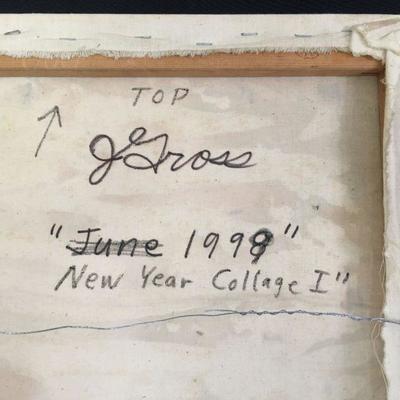 TOP
J Gross
"June 1998"
New Year Collage I"